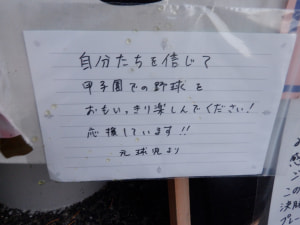 自分たちを信じて
甲子園での野球を
おもいっきり楽しんでください!
応援しています!!
元球児より
この
決勝
プレー